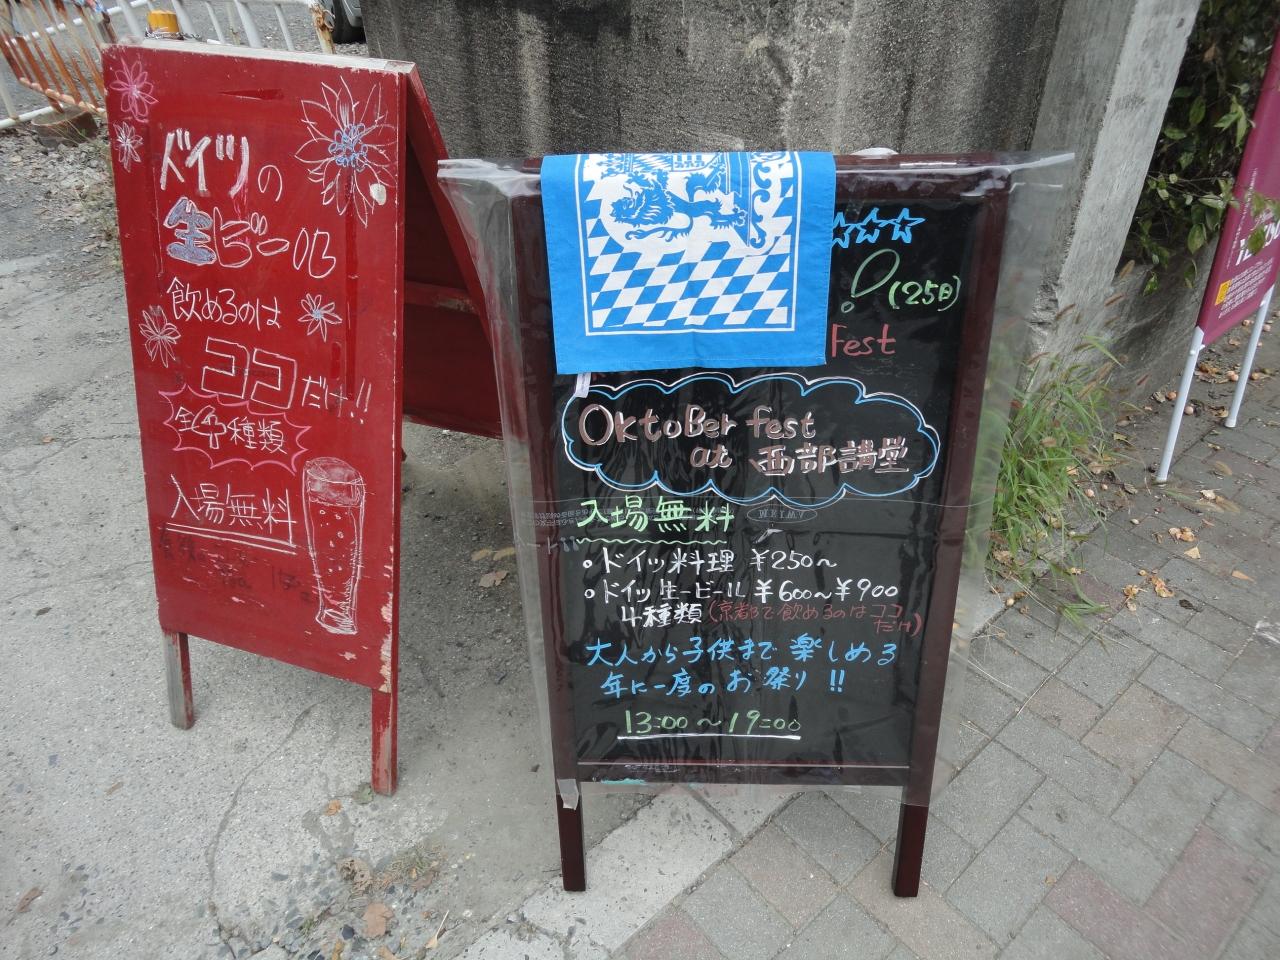 ドイツの
生ビール
飲めるのは
ココだけ!!
全4種類
入場無料
!(25日)
Fest
OktoBer fest
at 西部講堂
入場無料
○ドイツ料理 ¥250〜
○ドイツ生ービール ¥600〜¥900
4種類(京都で飲めるのはココ
だけ)
大人から子供まで楽しめる
年に一度のお祭り!!
13:00〜19:00